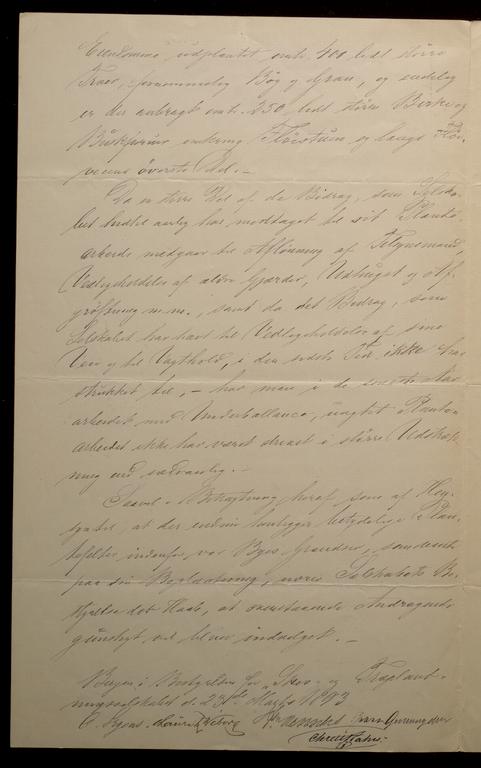 Eiendomme udplantet omtr. 400 lidt større
Træer, fornemmelig Bøg og Gran, og endelig
er der anbragt omtr. 250 lidt større Birke og
Buskfuruer omkring Fløistuen og langs Fløi-
veiens överste Del. -
Da en stor Del af de Bidrag, som Selska-
bet hidtil aarlig har modtaget til sit Plante-
arbeide medgaar til Aflønning af
Vedligeholdelse af ældre Gjærder, og Af-
grøftning m.m., samt da det Bidrag, som
Selskabet har havt til Vedligeholdelse af sine
Veie og til Vagthold, i den sidste Tid ikke har
strukket til, - har man i de seneste Aar
arbeidet med Underballance, uagtet Plante-
arbeidet ikke har været drevet i större Udstræk-
ning end sædvanlig. -
Saavel i Betragtning heraf som af Hen-
synet til, at der endnu henligger betydelige Plan-
tefelter indenfor vor Byes Grændser,
paa sin Beplantning, nærer Selskabets Be-
styrelse det Haab, at ovenstaaende Andragende
gunstigt vil blive indvilget. -
Bergen, i Bestyrelsen for Skov- og Træplant-
ningsselskabet d. 23de Marts 1893